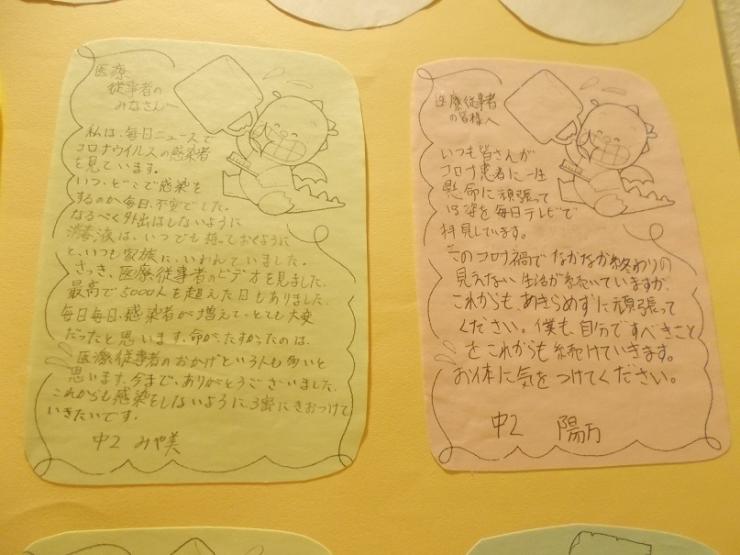 医療
従事者の
みなさんへ
私は、毎日ニュースで
コロナウイルスの感染者
を見ています。
いつ、どこで感染を
するのか毎日、不安でした。
なるべく外出はしないように
消毒液は、いつでも持っておくように
と、いつも家族に、いわれていました。
さっき、医療従事者のビデオを見ました。
最高で5000人を超えた日もありました。
毎日毎日、感染者が増えて、とても大変
だったと思います。命が、たすかったのは、
医療従事者のおかげという人も多いと
思います。今まで、ありがとうございました。
これからも感染をしないように、3密にきおつけて
いきたいです。
中2 みや美
医療従事者
の皆様へ
いつも皆さんが
コロナ患者に一生
懸命に頑張って
いる姿を毎日テレビで
拝見しています。
このコロナ禍でなかなか終わりの
見えない生活が続いていますが、
これからも、あきらめずに頑張って
ください。僕も、自分ですべきこと
をこれからも続けていきます。
お体に気をつけてください。
中2 陽万